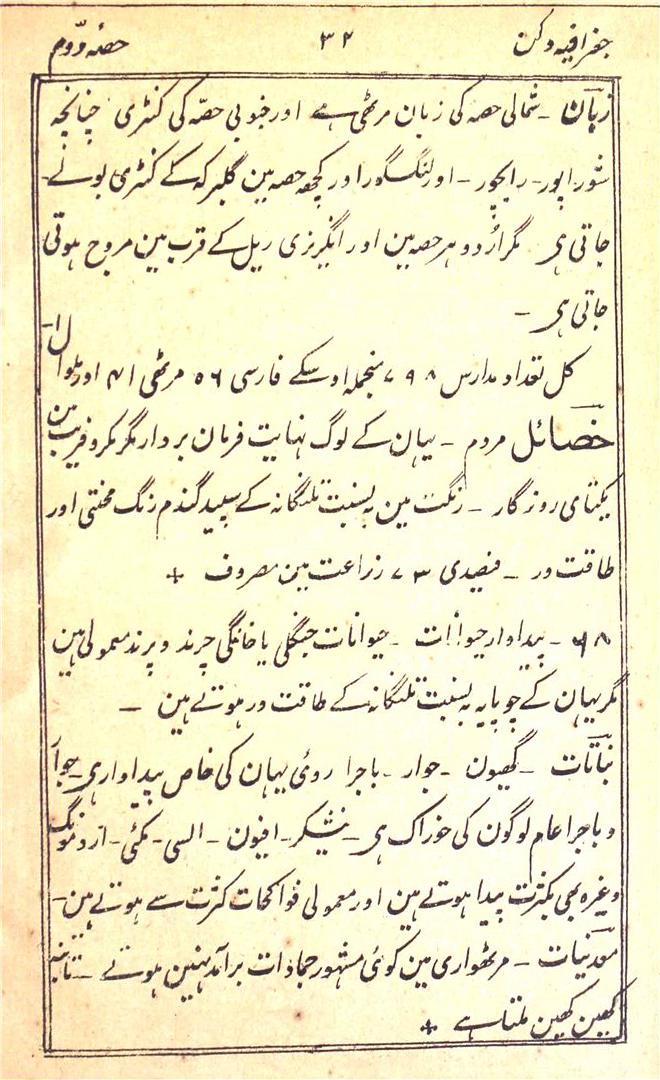 جغرافیہ دکن ۳۲ حصّہ دوّم
زبان - شمالی حصہ کی زبان مرہٹی ہے اور جنوبی حصّہ کی کنٹری چنانچہ
شوراپور - رایچور - اور لنگسگور اور کچھ حصہ مین گلبرگہ کے کنٹری بولے
جاتی ہی مگر اُردو ہر حصہ مین اور انگریزی ریل کے قرب مین مروج ہوتی
جاتی ہی -
کل تعداد مدارس ۷۹۸ منجملہ اوسکے فارسی ۵۶ مرہٹی ۴۱ اور
خصائل مردم - یہان کے لوگ نہایت فرمان بردار مگر مکر و فریب مین
یکتای روزگار - رنگت مین بہ نسبت تلنگانہ کے سپید گندم رنگ محنتی اور
طاقت ور - فیصدی ۷۳ زراعت مین مصروف +
۶۸ - پیداوار حیوانات - حیوانات جنگلی یا خانگی چرند و پرند معمولی ہین
مگر یہان کے چوپایہ بہ نسبت تلنگانہ کے طاقت ور ہوتے ہین -
نباتات - گیہون - جوار - باجرا روئی یہان کی خاص پیداوار ہی - جوار
و باجرا عام لوگون کی خوراک ہی - نیشکر - افیون - السی - مکئی - ارد مونگ
وغیرہ بھی بکثرت پیدا ہوتے ہین اور معمولی فواکہات کثرت سے ہوتے ہین -
معدنیات - مرہٹواری مین کوئی مشہور جمادات برآمد نہین ہوتے - تانبہ
کہین کہین ملتا ہے +